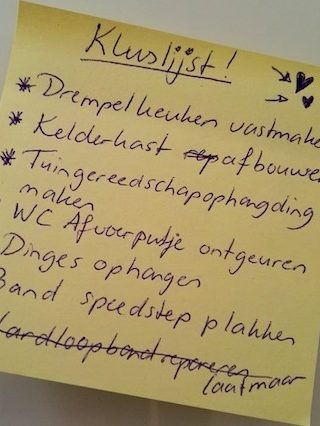 Kluslijst!
* Drempel keuken vastmake
* Kelderkast afbouwen
* Tuingereedschapophangding
maken
WC Afvoerputje ontgeuren
Dinges ophangen
Band speedstep plakken
ardloopband repareren
laatmaar